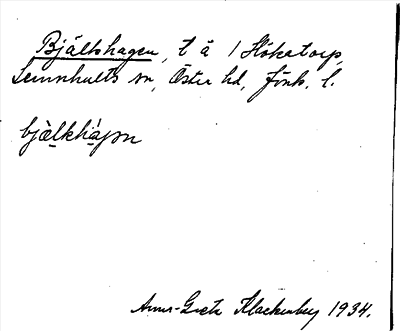 Bjälkhagen, t å 1 Hökatorp,
Lemnhults sn, Öster hd, Jönk. l.
bjælkhagan
Anna-Greta Klackenberg 1934.